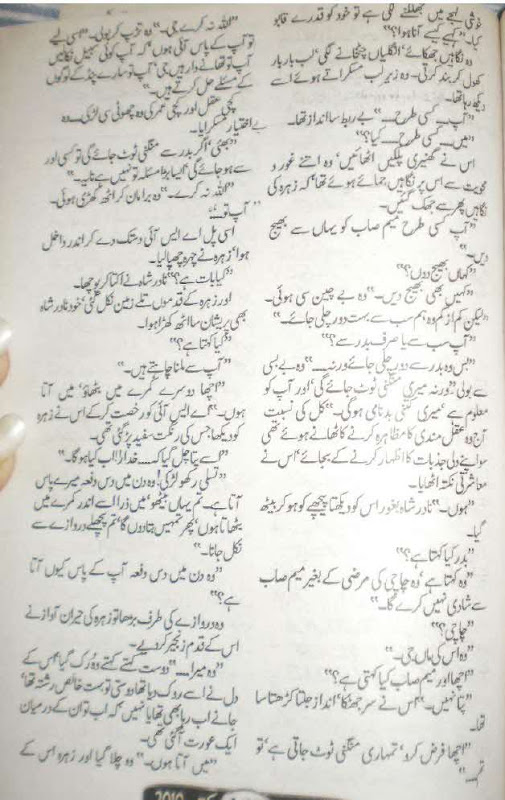 خوشی لہجے میں جھلکنے لگی ہے تو خود کو قدرے قابو
کیا۔ "کہے کیسے آنا ہوا؟"
وہ نگاہیں جھکائے انگلیاں چٹخانے لگی' لب بار بار
کھول کر بند کرتی۔ وہ زیر لب مسکراتے ہوئے اسے
دیکھ رہا تھا۔
"آپ۔۔۔ کسی طرح۔۔۔" بے ربط سا انداز تھا۔
"میں۔۔۔ کسی طرح۔۔۔ کیا؟"
اس نے گھنیری پلکیں اٹھائیں' وہ اتنے غور و
محویت سے اس پر نگاہیں جمائے ہوئے تھا' کہ زہرہ کی
نگاہیں پھر سے جھک گئیں۔
"آپ کسی طرح میم صاب کو یہاں سے بھیج
دیں۔"
"کہاں بھیج دوں؟"
"کہیں بھی بھیج دیں۔" وہ بے چین سی ہوئی۔
"لیکن کم از کم وہ ہم سب سے بہت دور چلی جائے۔"
"آپ سب سے یا صرف بدر سے؟"
"بس وہ بدر سے دور چلی جائے ورنہ۔۔۔" وہ بے بسی
سے بولی "ورنہ میری منگنی ٹوٹ جائے گی' اور آپ کو
معلوم ہے' میری کتنی بدنامی ہوگی۔" کل کی نسبت
آج وہ عقل مندی کا مظاہرہ کرنے کا ٹھانے ہوئے تھی
سو اپنے دلی جذبات کا اظہار کرنے کے بجائے' اس نے
معاشرتی نکتہ اٹھایا۔
"ہوں۔" نادر شاہ بغور اس کو دیکھتا پیچھے کو ہو کر بیٹھ
گیا۔
"بدر کیا کہتا ہے؟"
"وہ کہتا ہے' وہ چاچی کی مرضی کے بغیر میم صاب
سے شادی نہیں کرے گا۔"
"چاچی؟"
"وہ اس کی ماں جی۔"
"اچھا اور میم صاب کیا کہتی ہے؟"
"پتا نہیں۔" اس نے سر جھٹکا' انداز جلتا کڑھتا سا
تھا۔
"اچھا فرض کرو' تمہاری منگنی ٹوٹ جاتی ہے' تو
تم۔۔۔"
"اللہ نہ کرے جی۔" وہ تڑپ کر بولی۔ "اسی لیے
تو آپ کے پاس آئی ہوں' کہ آپ کوئی سبیل نکالیں
آپ تو تھانے دار ہیں جی' آپ تو سارے چنڈ کے لوگوں
کے مسئلے حل کرتے ہیں۔"
کچی عقل اور کچی عمر کی وہ چھوٹی سی لڑکی۔۔۔ وہ
بے اختیار مسکرایا۔
"بھئی' اگر بدر سے منگنی ٹوٹ جائے گی تو کسی اور
سے ہو جائے گی' ایسا بڑا مسئلہ تو نہیں ہے نا یہ۔"
"اللہ نہ کرے۔" وہ برا مان کر اٹھ کھڑی ہوئی۔
"آپ تو۔۔۔"
اسی پل اے ایس آئی دستک دے کر اندر داخل
ہوا' زہرہ نے چہرہ چھپا لیا۔
"کیا بات ہے؟" نادر شاہ نے اکتا کر پوچھا۔
اور زہرہ کے قدموں تلے زمین نکل گئی' خود نادر شاہ
بھی پریشان سا اٹھ کھڑا ہوا۔
"کیا کہتا ہے؟"
"آپ سے ملنا چاہتے ہیں۔"
"اچھا دوسرے کمرے میں بٹھاؤ' میں آتا
ہوں۔" اے ایس آئی کو رخصت کر کے اس نے زہرہ
کو دیکھا' جس کی رنگت سفید پڑ گئی تھی۔
"اسے پتا چل گیا کہ۔۔۔ خدارا! اب کیا ہو گا۔"
"تسلی رکھو لڑکی! وہ دن میں دس دفعہ میرے پاس
آتا ہے۔ تم یہاں بیٹھو' میں ذرا اسے اندر کمرے میں
بٹھاتا ہوں' پھر تمہیں بتا دوں گا' تم پچھلے دروازے سے
نکل جانا۔"
"وہ دن میں دس دفعہ آپ کے پاس کیوں آتا
ہے؟"
وہ دروازے کی طرف بڑھا تو زہرہ کی حیران آواز نے
اس کے قدم زنجیر کر دیے۔
"وہ میرا۔۔۔" دوست کہتے کہتے وہ رک گیا' اس کے
دل نے اسے روک دیا تھا' دوستی تو بہت خالص رشتہ تھا'
جانے اب رہا بھی تھا یا نہیں' کہ اب تو ان کے درمیان
ایک عورت آ گئی تھی۔
"میں آتا ہوں۔" وہ چلا گیا اور زہرہ اس کے
2010